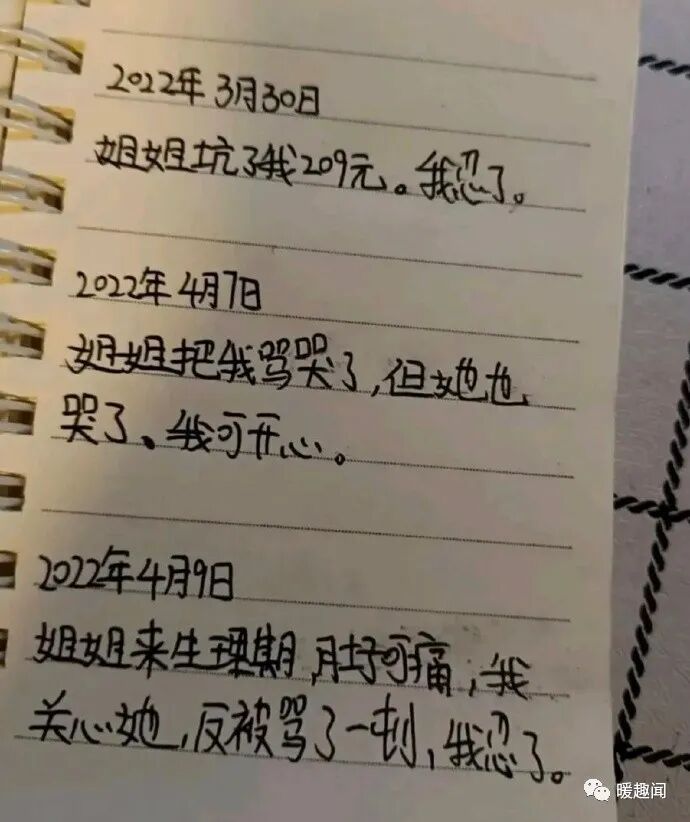 2022年3月30日
姐姐坑了我209元。我忍了。
2022年4月7日
姐姐把我骂哭了,但她也
哭了、我可开心。
2022年4月9日
姐姐来生理期,肚子可痛,我
关心她,反被骂了一顿,我忍了。
暖趣闻